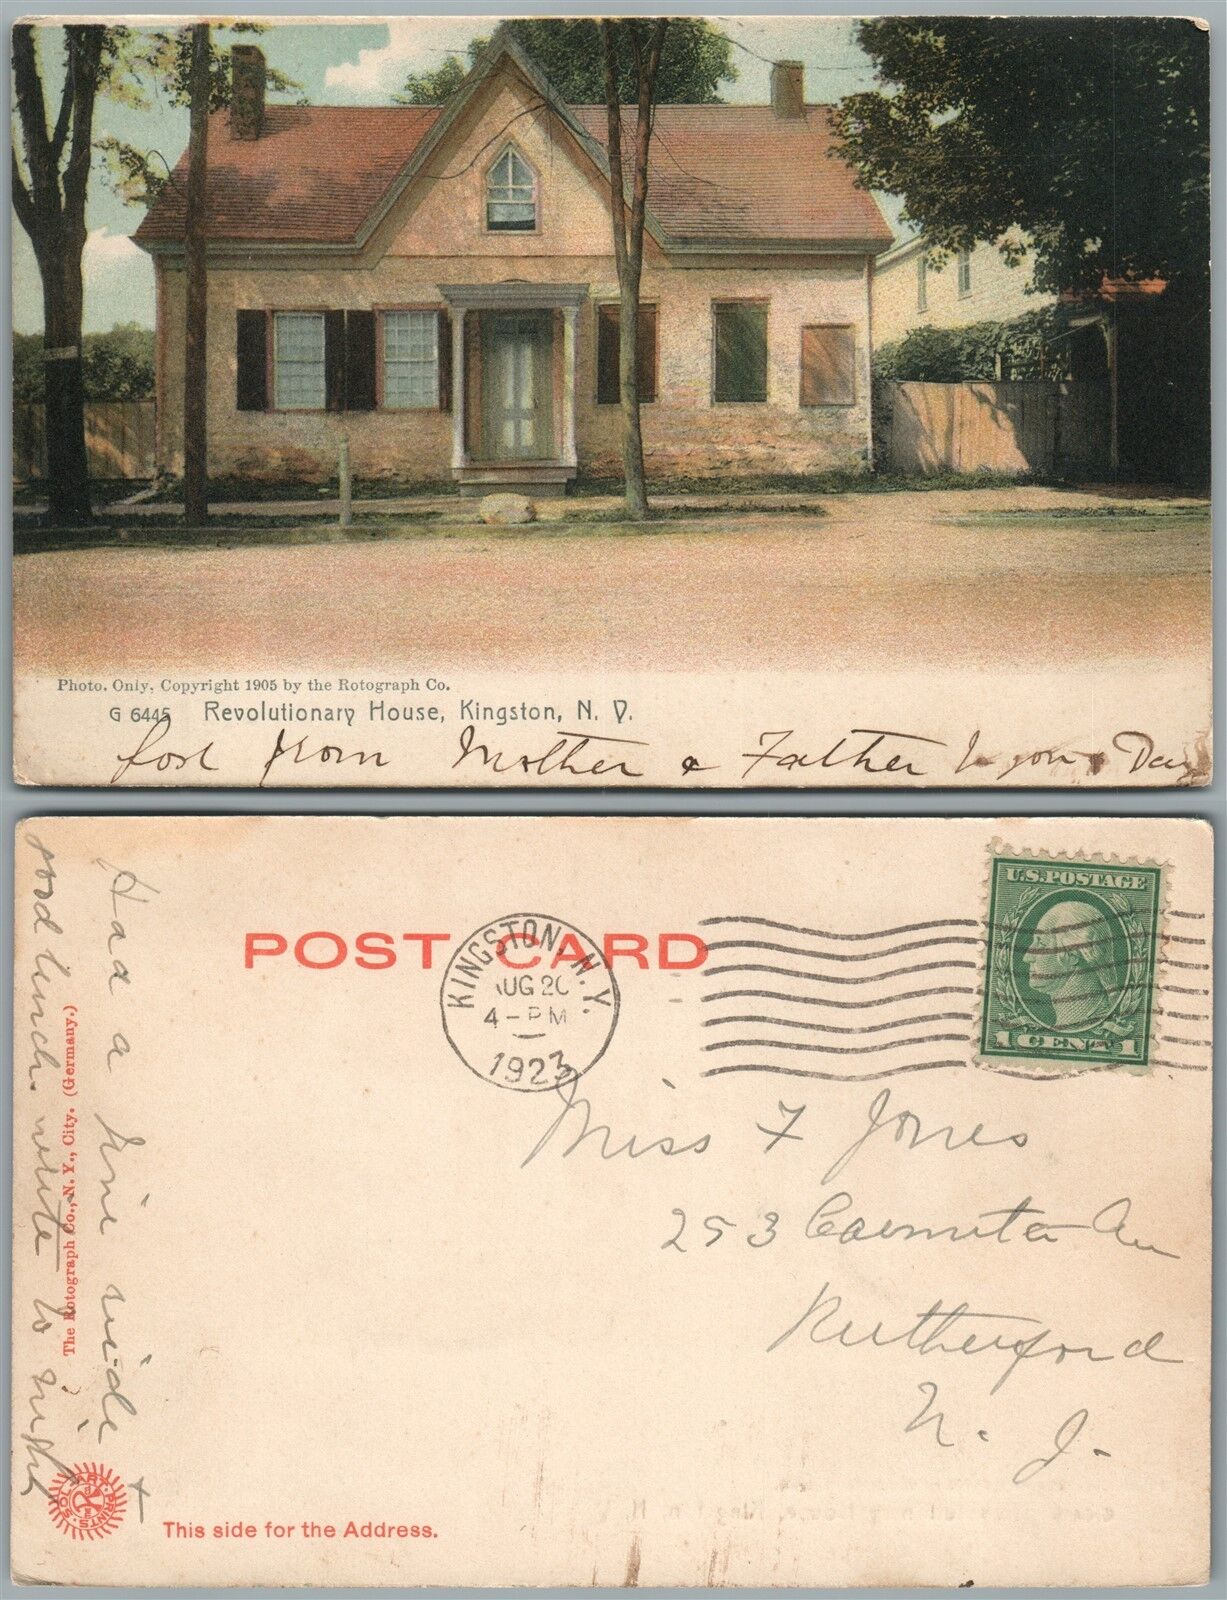 Photo. Only, Copyright 1905 by the Rotograph Co.
G 6445 Revolutionary House, Kingston, N. Y.
from Mother & Father to you & Day
POST CARD
KINGSTON, N.Y.
AUG 20
4-PM
1923
U.S. POSTAGE
1 CENT 1
Miss F Jones
253 Ave
Rutherford
N. J.
Had a fine ride +
good lunch. write to
The Rotograph Co., N. Y., City. (Germany.)
SOL ART PRINTS
This side for the Address.